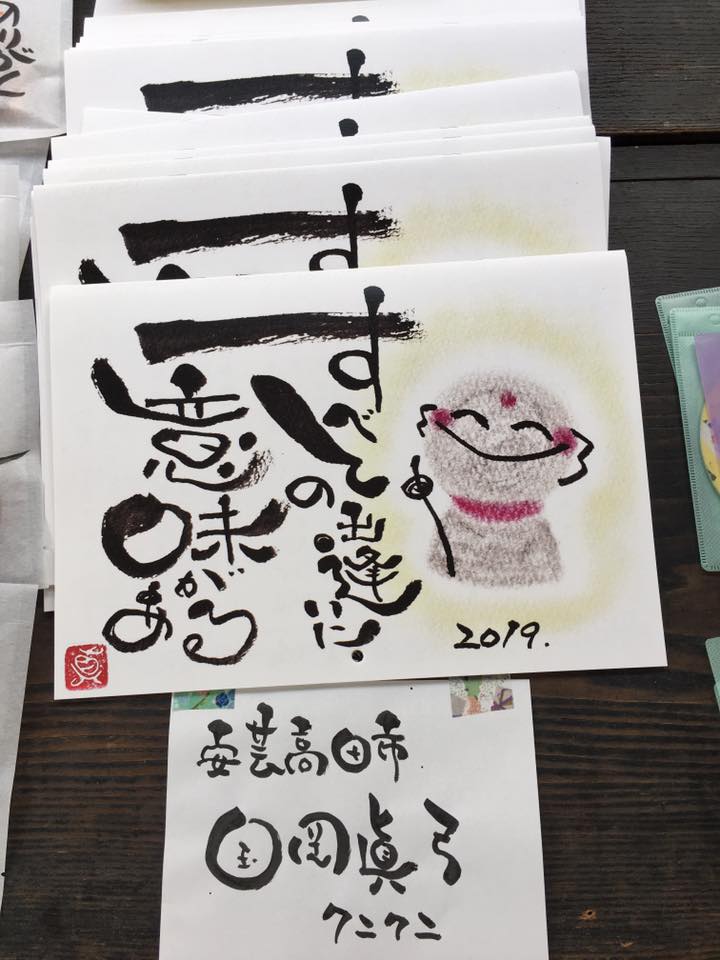 すべての
出逢いに
意味が
ある
2019.
安芸高田市
国岡眞弓
クニクニ